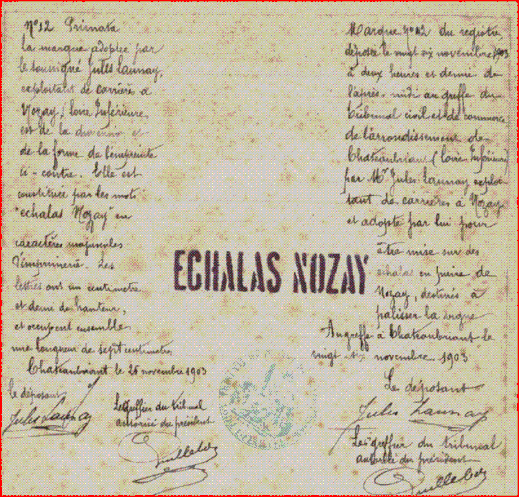 N°12 Primata
la marque adoptée par
le soussigné Jules Launay,
exploitant de carrière à
Nozay (Loire Inférieure
est de la dimension et
de la forme de l'empreinte
ci-contre. Elle est
constituée par les mots
"echalas Nozay en
caractères majuscules
d'imprimerie. Les
lettres ont un centimètre
et demi de hauteur,
et occupent ensemble
une longueur de sept centimètres
Chateaubriant le 26 novembre 1903
le déposant
Jules Launay
Le greffier du tribunal
autorisé du président
ECHALAS NOZAY
Marque N°12 du registre
déposée le vingt six novembre 1903
à deux heures et demie de
l'après-midi au greffe du
Tribunal civil et de commerce
de l'arrondissement de
Chateaubriant (Loire Inférieure)
par Mr Jules Launay exploi
tant de carrières à Nozay
et adoptée par lui pour
être mise sur des
echalas en pierre de
Nozay, destinés à
palisser la vigne
Au greffe à Chateaubriant le
vingt six novembre 1903
Le déposant
Jules Launay
Le greffier du tribunal
autorisé du président